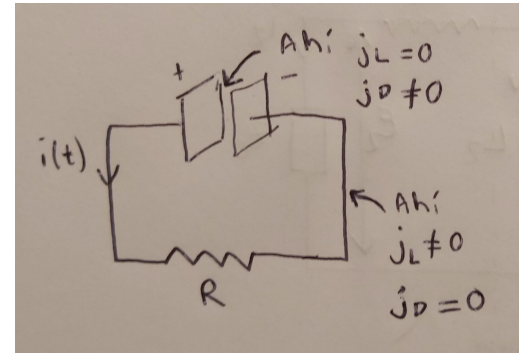 Ahí jL=0
jD≠0
+
−
i(t)
Ahí
jL≠0
jD=0
R